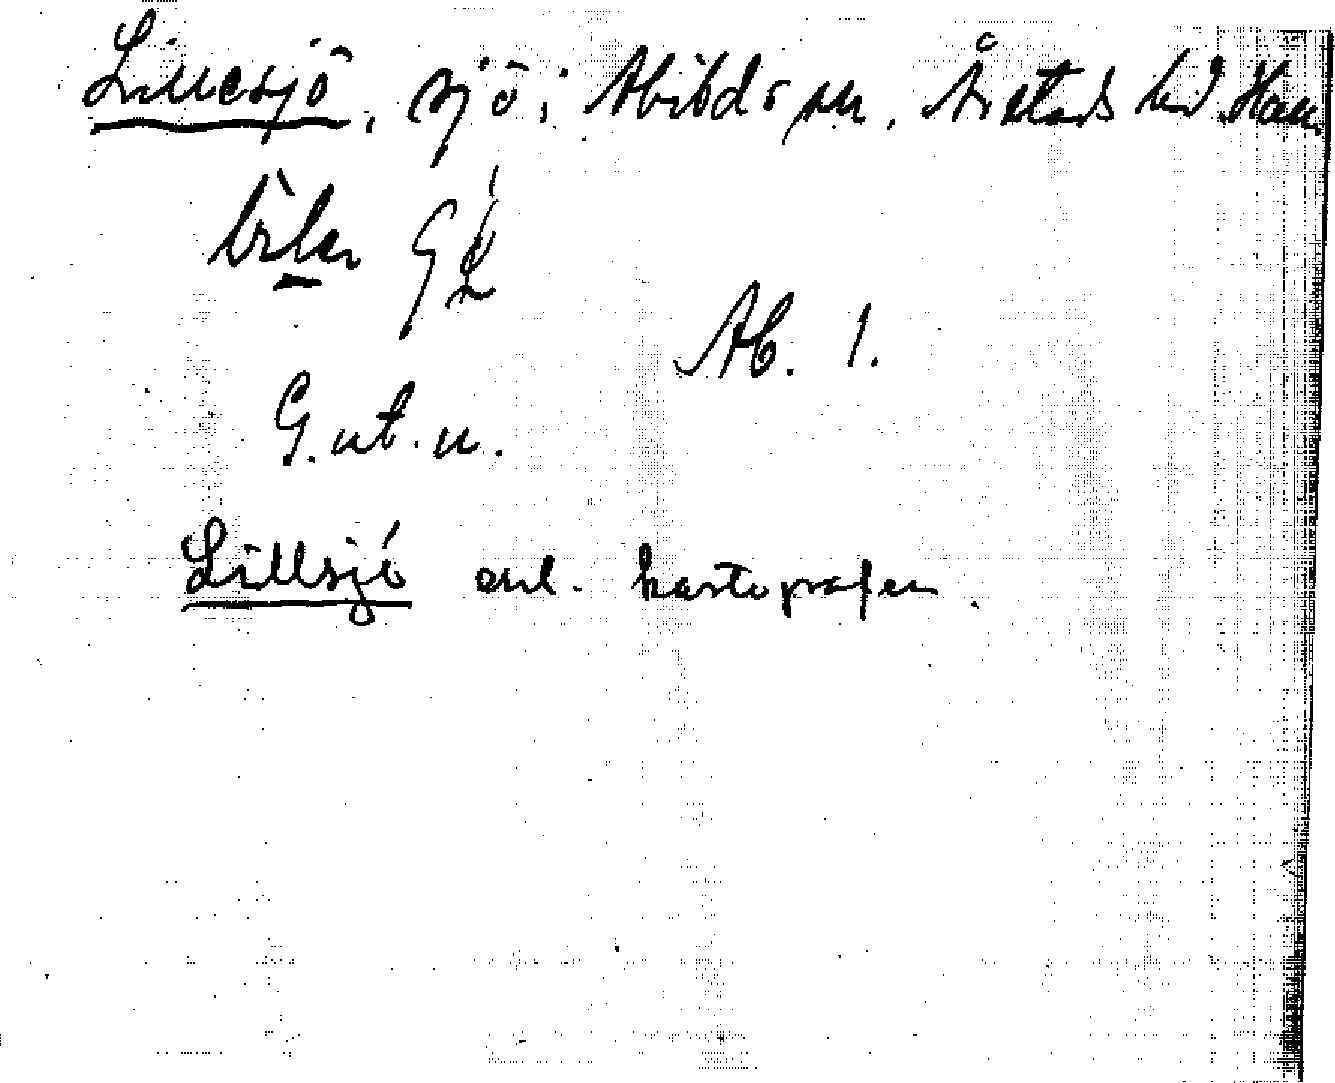 Lillesjö, sjö i Abilds sn. Årstads hd. Hall.
G
Ab. 1.
G. ut. u.
Lillsjö enl. kartografen.